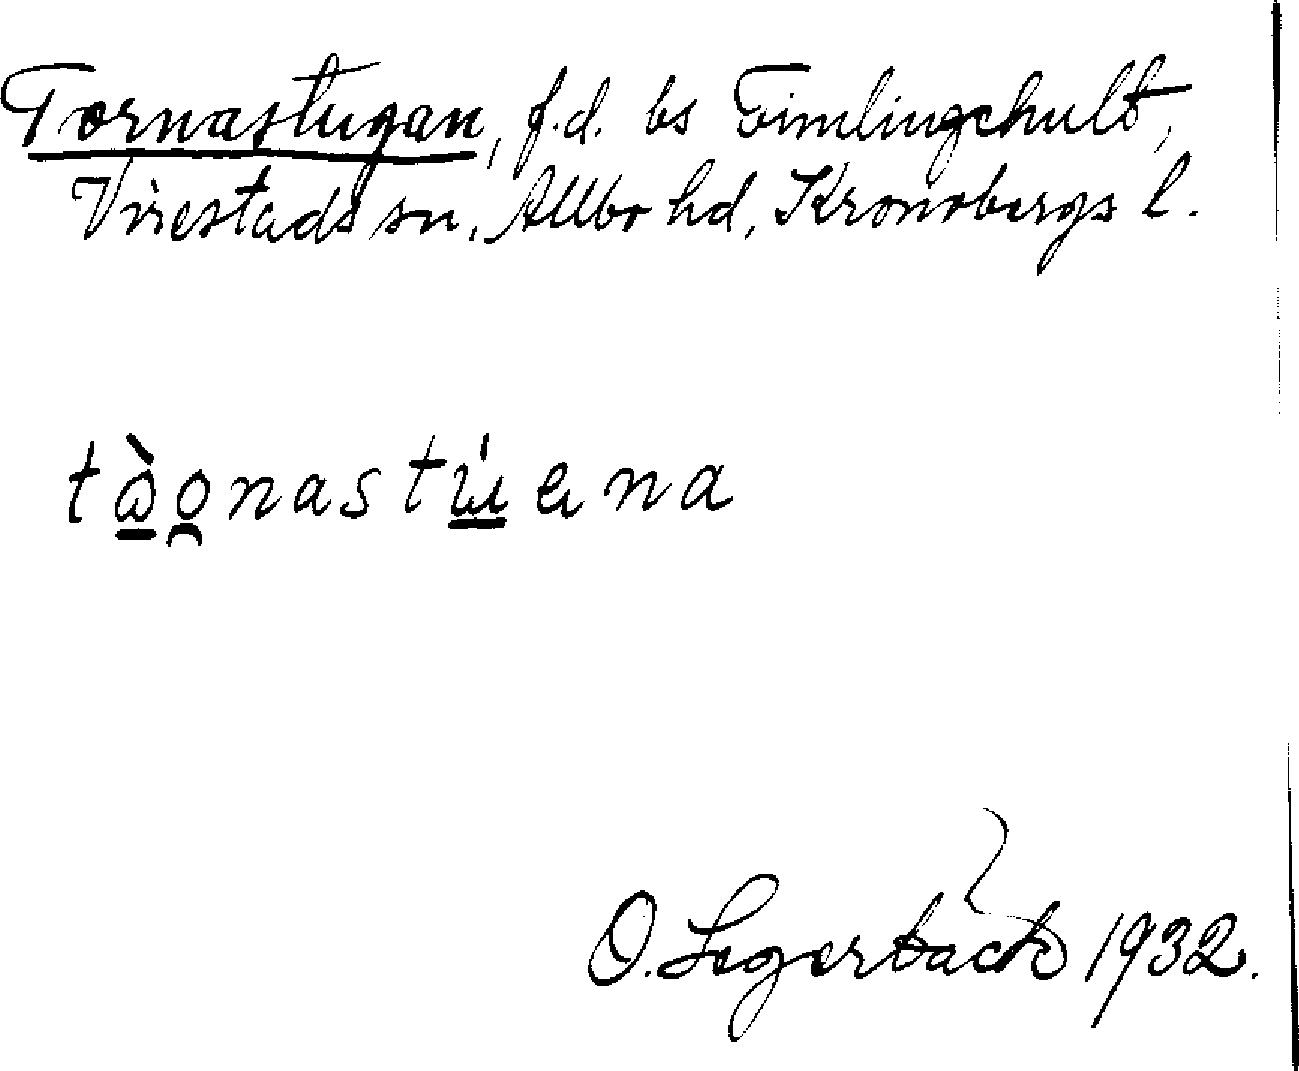 Tornastugan, f.d. bs Eimlingehult,
Virestads sn, Allbo hd, Kronobergs l.
O. Segerbäck 1932.